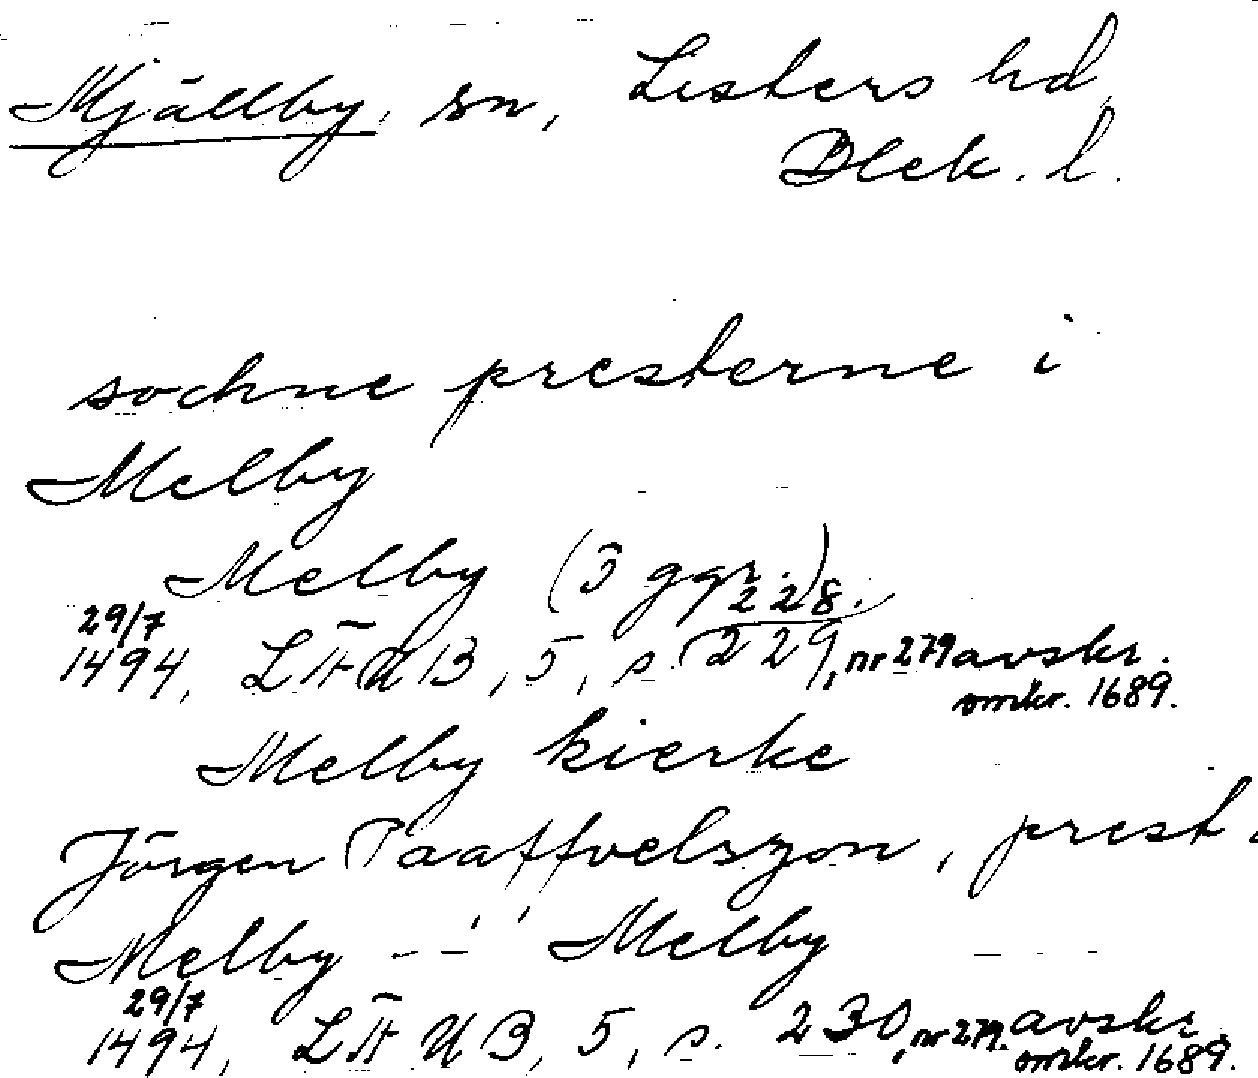 Mjällby, sn, Listers hd,
Blek. l.
sochne presterne i
Melby
Melby (3 ggr.)
29/7
1494, LÄUB, 5, s. 228.
229, nr 279 avskr.
omkr. 1689.
Melby kierke
Jörgen Paaffvelszon, prest
Melby -- Melby
29/7
1494, LÄUB, 5, s. 230, nr 279. avskr.
omkr. 1689.